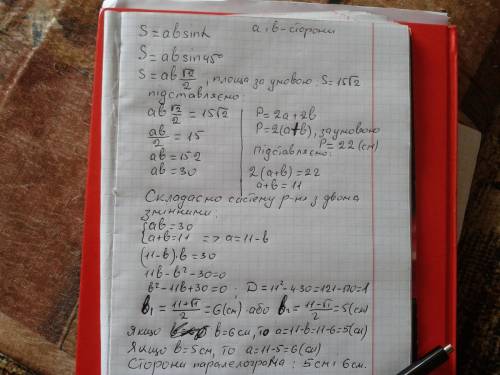 S = ab sinα   a і b - сторони
S = ab sin45°
S = ab √2/2, площа за умовою: S = 15√2
підставляємо:
ab √2/2 = 15√2
ab/2 = 15
ab = 15·2
ab = 30
P = 2a + 2b
P = 2(a+b), за умовою
P = 22 (см)
Підставляємо:
2(a+b) = 22
a+b = 11
Складаємо систему р-нь з двома
змінними:
{ab = 30
{a+b = 11 => a = 11-b
(11-b)·b = 30
11b - b² - 30 = 0
b² - 11b + 30 = 0; D = 11² - 4·30 = 121 - 120 = 1
b₁ = (11+√1)/2 = 6(см) або b₂ = (11-√1)/2 = 5(см)
Якщо b = 6 см, то a = 11-b = 11-6 = 5(см)
Якщо b = 5 см, то a = 11-5 = 6(см)
Сторони паралелограма: 5 см і 6 см.